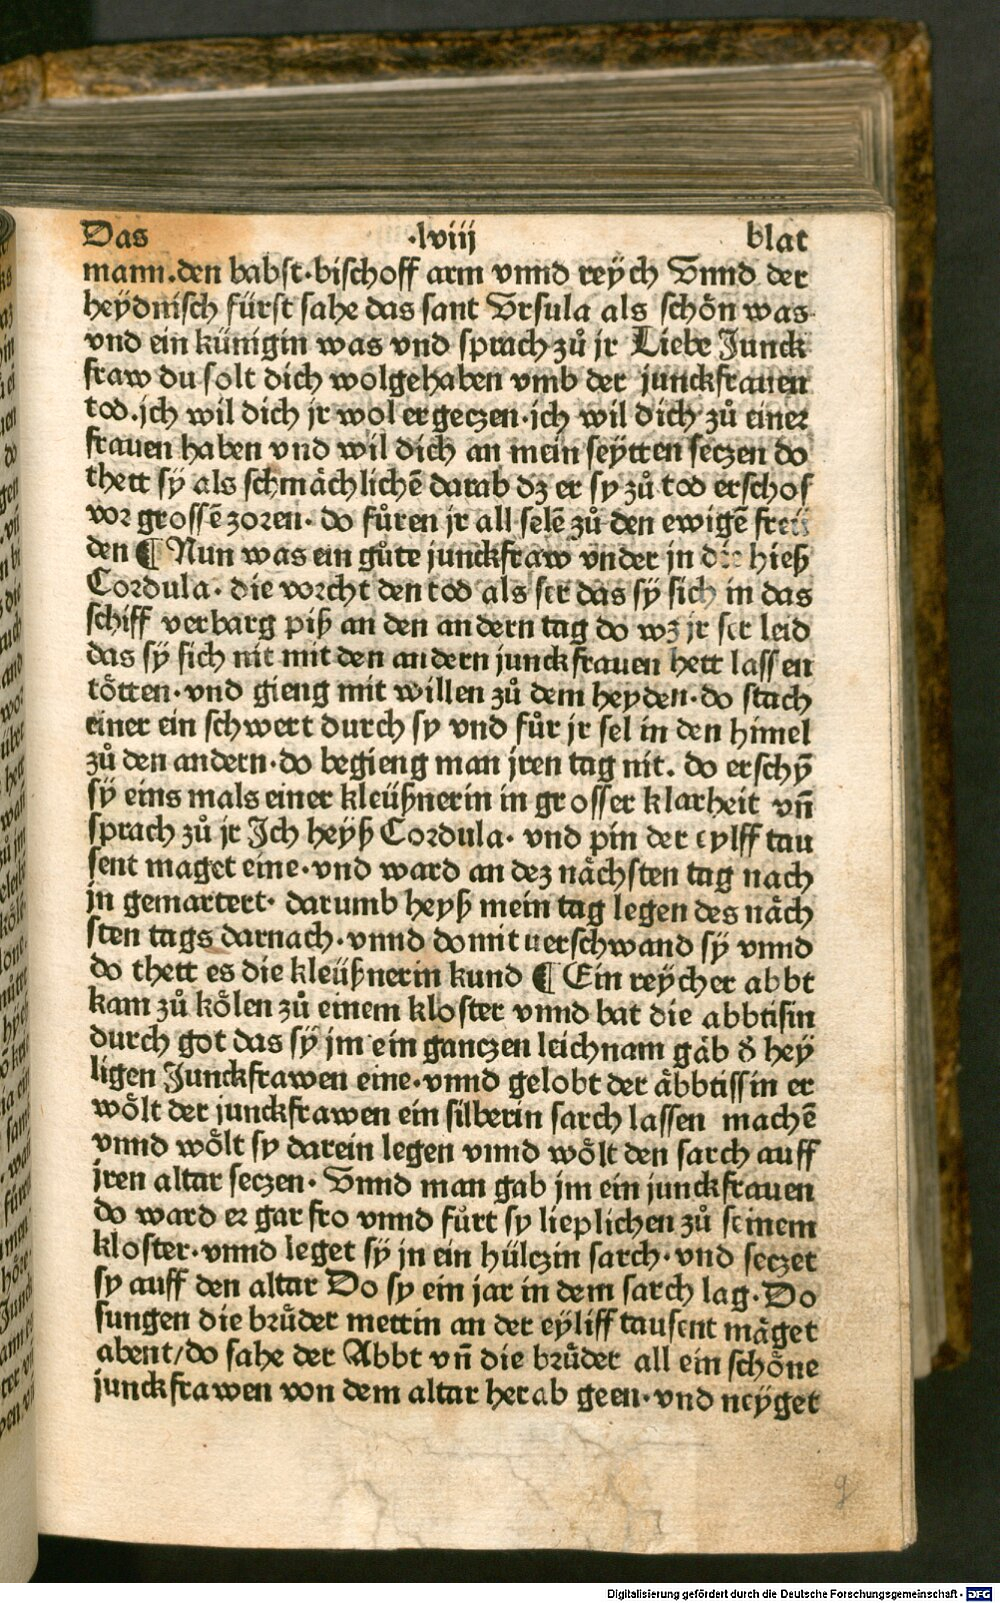 Das ·lviij blat
mann·den babst·bischoff arm vnnd reÿch Vnnd der
heÿdnisch fürst sahe das sant Vrsula als schön was
vnd ein künigin was vnd sprach zů jr Liebe Junck
fraw du solt dich wolgehaben vmb der junckfrauen
tod·jch wil dich jr wol ergeczen·ich wil dich zů einer
frauen haben vnd wil dich an mein seÿtten seczen do
thett sÿ als schmächlichē darab dz er sy zů tod erschos
vor grossē zoren· do fůren jr all selē zů den ewigē freü
den ¶ Nun was ein gůte junckfraw vnder jn die hieß
Cordula· die vorcht den tod als ser das sÿ sich in das
schiff verbarg piß an den andern tag do wz jr ser leid
das sÿ sich nit mit den andern junckfrauen hett lassen
tötten·vnd gieng mit willen zů dem heyden·do stach
einer ein schwert durch sy vnd fůr jr sel in den himel
zů den andern·do begieng man jren tag nit. do erschÿ̄
sÿ eins mals einer kleüßnerin in grosser klarheit vn̄
sprach zů jr Ich heÿß Cordula· vnd pin der eylff tau
sent maget eine·vnd ward an dez nächsten tag nach
jn gemartert· darumb heyß mein tag legen des näch
sten tags darnach·vnnd domit uerschwand sÿ vnnd
do thett es die kleüßnerin kund ¶ Ein reÿcher abbt
kam zů kölen zů einem kloster vnnd bat die abbtisin
durch got das sÿ jm ein ganczen leichnam gäb đ hey
ligen Junckfrawen eine·vnnd gelobt der äbbtissin er
wölt der junckfrawen ein silberin sarch lassen machē
vnnd wölt sy darein legen vnnd wölt den sarch auff
jren altar seczen· Vnnd man gab jm ein junckfrauen
do ward er gar fro vnnd fůrt sy lieplichen zů seinem
kloster·vnnd leget sÿ jn ein hülczin sarch·vnd seczet
sy auff den altar Do sy ein jar in dem sarch lag·Do
sungen die brůder mettin an der eÿliff tausent mäget
abent/do sahe der Abbt vn̄ die brůder all ein schöne
junckfrawen von dem altar herab geen·vnd neÿget
g
Digitalisierung gefördert durch die Deutsche Forschungsgemeinschaft - DFG